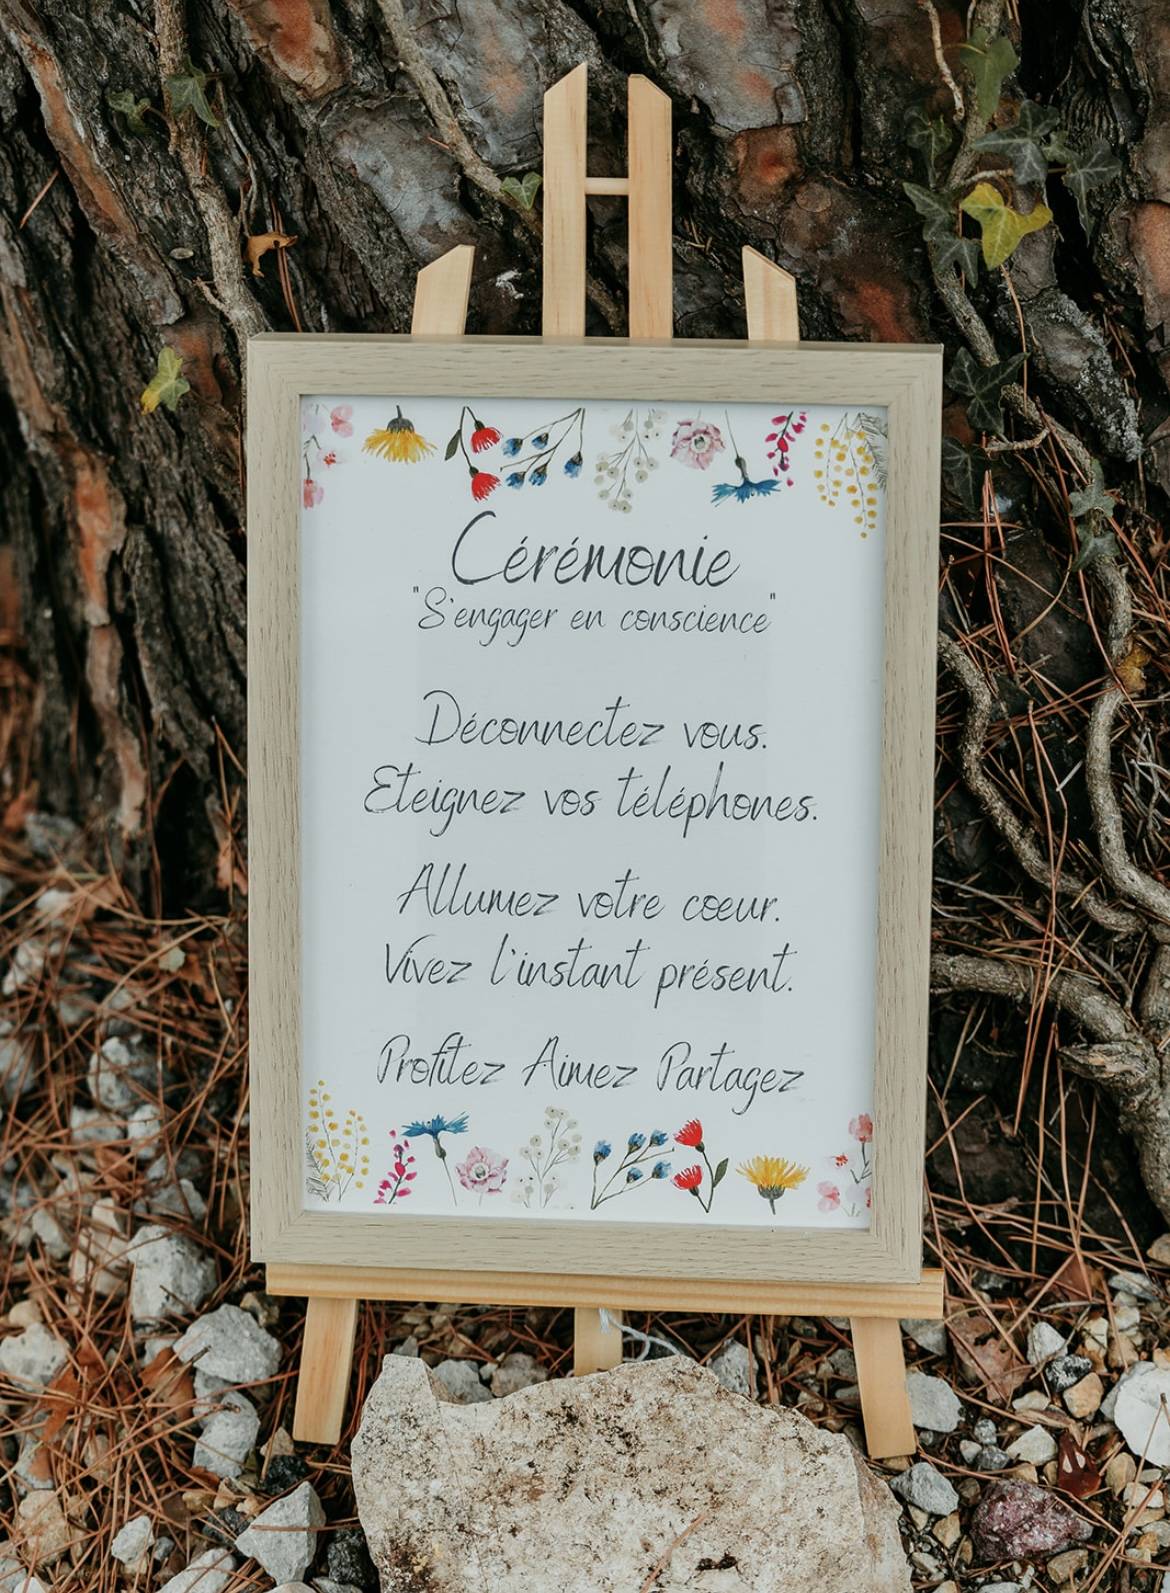 Cérémonie
"S'engager en conscience"
Déconnectez vous.
Eteignez vos téléphones.
Allumez votre cœur.
Vivez l'instant présent.
Profitez Aimez Partagez